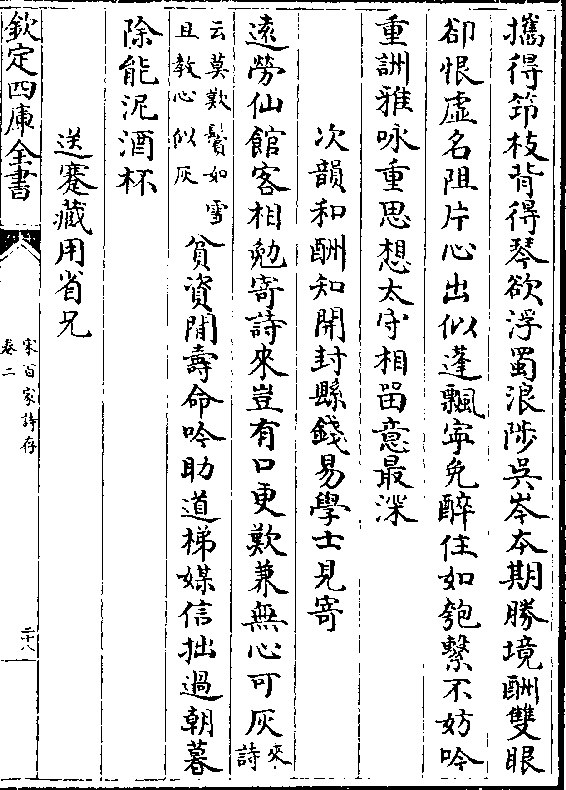 攜得筇枝背得琴欲浮蜀浪陟吳岑本期勝境酬雙眼
卻恨虛名阻片心出似蓬飄寜免醉住如匏繫不妨吟
重詶雅咏重思想太守相畱意最深
次韻和酬知開封縣錢易學士見寄
遠勞仙館客相勉寄詩來豈有口更歎兼無心可灰來詩
云莫歎鬢如雪
且教心似灰
貧資閒壽命吟助道梯媒信拙過朝暮
除能泥酒杯
送蹇藏用省兄
欽定四庫全書
宋百家詩存
卷二
二十八